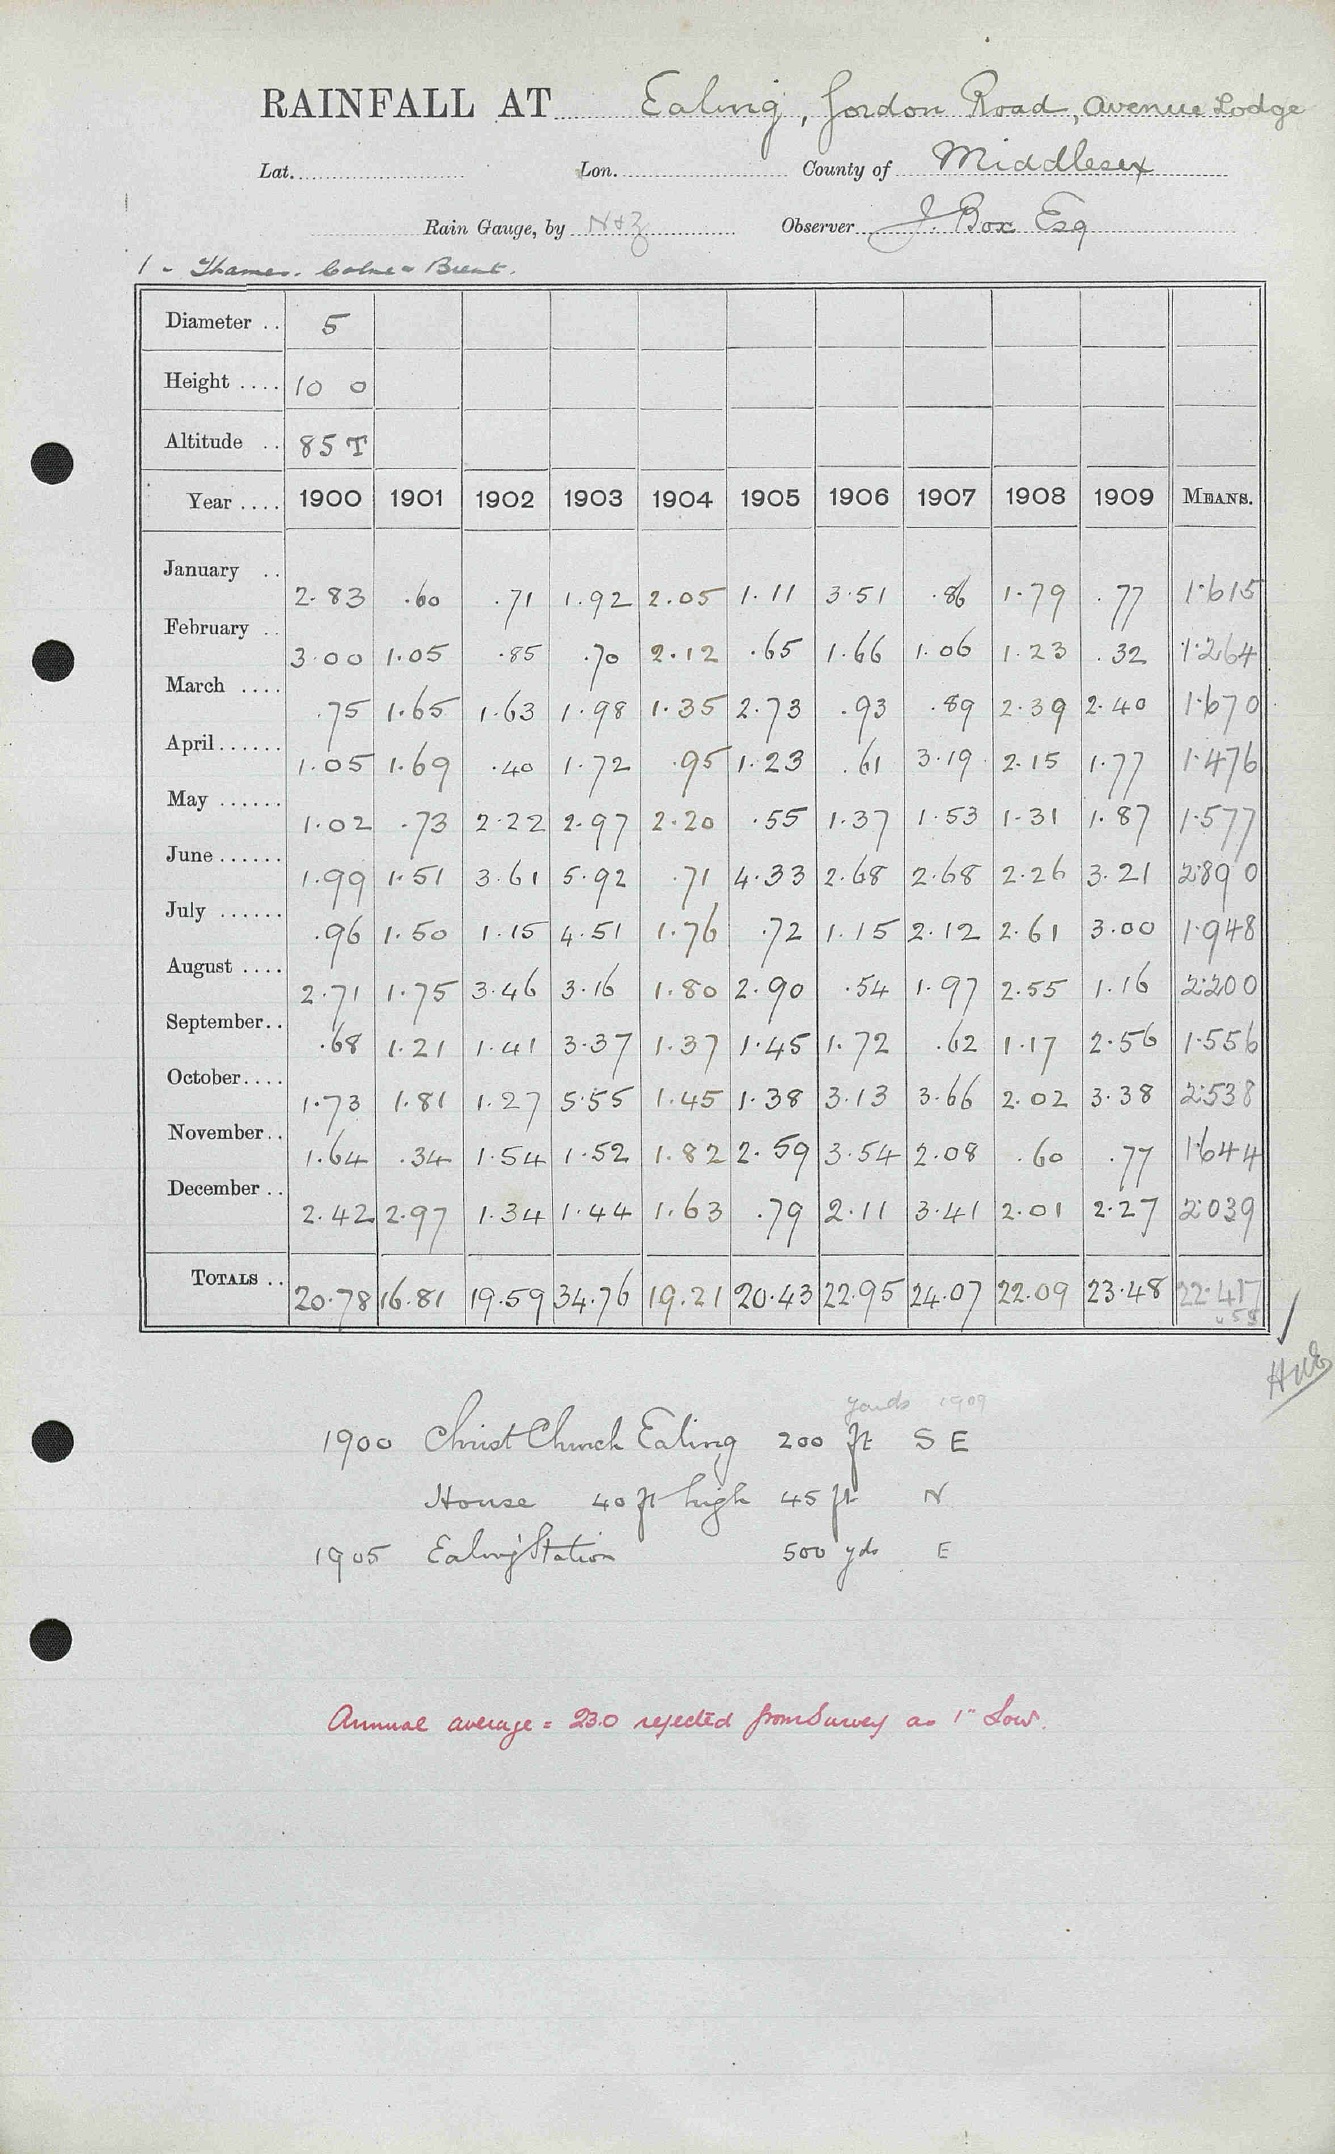 RAINFALL AT Ealing, Gordon Road, Avenue Lodge
Lat. Lon. County of Middlesex
Rain Gauge, by N+Z Observer J. Box Esq
1 - Thames. Colne & Brent.
Diameter .. 5
Height .... 10 0
Altitude .. 85 T
Year .... 1900 1901 1902 1903 1904 1905 1906 1907 1908 1909 MEANS.
January .. 2.83 .60 .71 1.92 2.05 1.11 3.51 .86 1.79 .77 1.615
February .. 3.00 1.05 .85 .70 2.12 .65 1.66 1.06 1.23 .32 1.264
March .... .75 1.65 1.63 1.98 1.35 2.73 .93 .89 2.39 2.40 1.670
April...... 1.05 1.69 .40 1.72 .95 1.23 .61 3.19 2.15 1.77 1.476
May ...... 1.02 .73 2.22 2.97 2.20 .55 1.37 1.53 1.31 1.87 1.577
June ...... 1.99 1.51 3.61 5.92 .71 4.33 2.68 2.68 2.26 3.21 2.890
July ...... .96 1.50 1.15 4.51 1.76 .72 1.15 2.12 2.61 3.00 1.948
August .... 2.71 1.75 3.46 3.16 1.80 2.90 .54 1.97 2.55 1.16 2.200
September.. .68 1.21 1.41 3.37 1.37 1.45 1.72 .62 1.17 2.56 1.556
October.... 1.73 1.81 1.27 5.55 1.45 1.38 3.13 3.66 2.02 3.38 2.538
November.. 1.64 .34 1.54 1.52 1.82 2.59 3.54 2.08 .60 .77 1.644
December .. 2.42 2.97 1.34 1.44 1.63 .79 2.11 3.41 2.01 2.27 2.039
TOTALS .. 20.78 16.81 19.59 34.76 19.21 20.43 22.95 24.07 22.09 23.48 22.417
yards 1909
1900 Christ Church Ealing 200 ft S E
House 40 ft high 45 ft N
1905 Ealing Station 500 yds E
Annual average = 23.0 rejected from Survey as 1" Low.